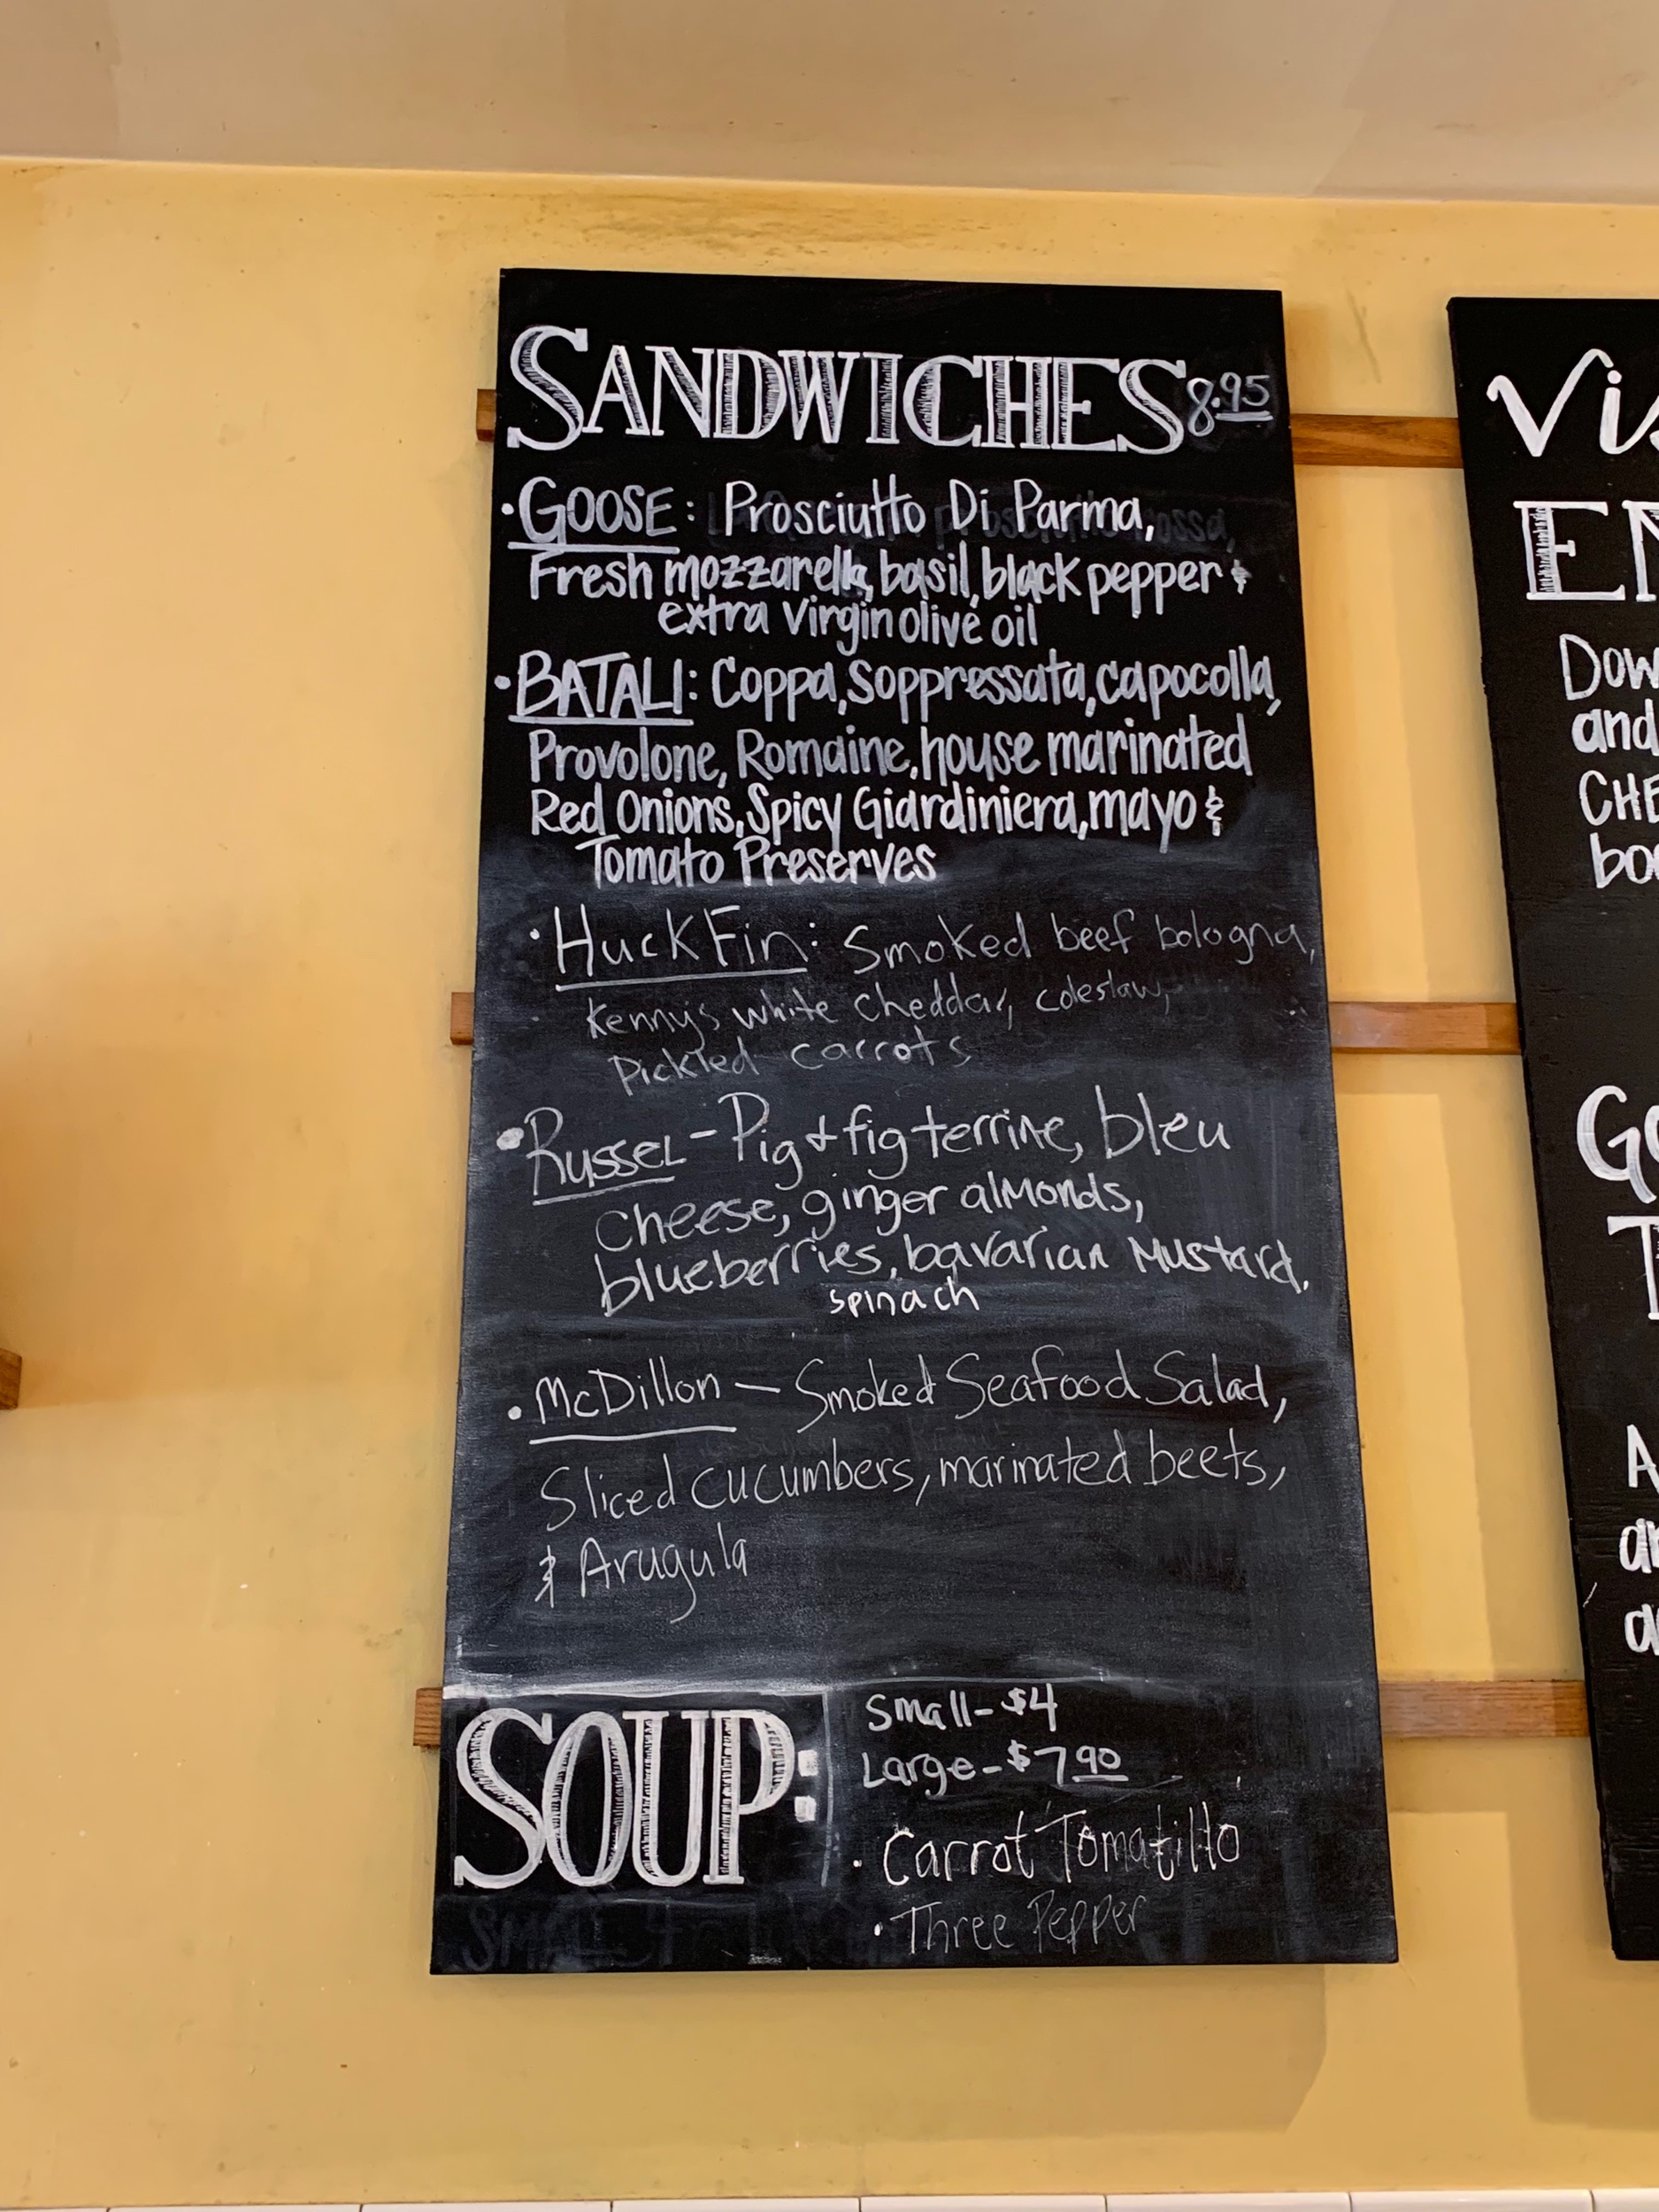 SANDWICHES 8.95
· GOOSE: Prosciutto Di Parma,
Fresh mozzarella, basil, black pepper &
extra virgin olive oil
· BATALI: Coppa, Soppressata, capocolla,
Provolone, Romaine, house marinated
Red Onions, Spicy Giardiniera, mayo &
Tomato Preserves
· Huck Fin: Smoked beef bologna,
Kenny's white cheddar, coleslaw,
Pickled carrots
· Russel - Pig & fig terrine, bleu
cheese, ginger almonds,
blueberries, bavarian Mustard,
spinach
· McDillon — Smoked Seafood Salad,
Sliced cucumbers, marinated beets,
& Arugula
SOUP:
Small - $4
Large - $7.90
· Carrot Tomatillo
· Three Pepper
and